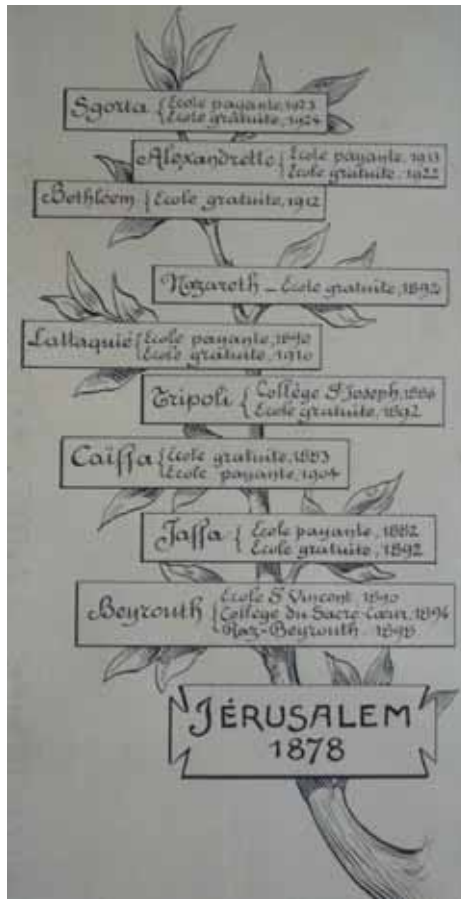 Sgorta { École payante, 1923
École gratuite, 1924
Alexandrette { École payante, 1913
École gratuite, 1922
Bethléem { École gratuite, 1912
Nazareth – École gratuite, 1892
Lattaquié { École payante,
École gratuite, 1910
Tripoli { Collège St Joseph, 1886
École gratuite, 1892
Caïffa { École gratuite, 1883
École payante, 1904
Jaffa { École payante, 1882
École gratuite, 1892
Beyrouth { École St Vincent 1890
Collège du Sacré-Cœur, 1894
Raz-Beyrouth 1898
JÉRUSALEM
1878